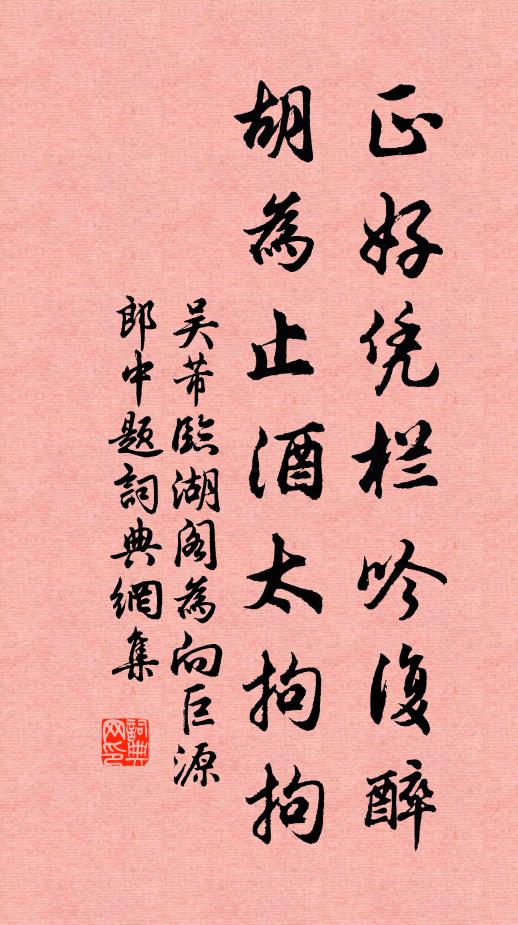 正好凭栏吟复醉
胡為止酒太拘拘
吴芾臨湖阁為向巨源
郎中題詞典網集
詞典網印